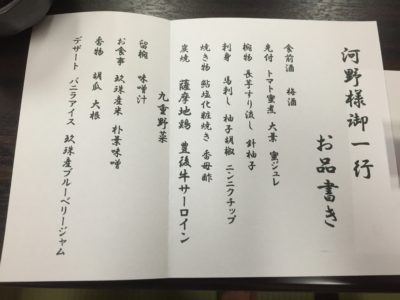 河野様御一行
お品書き
食前酒 梅酒
先付 トマト蜜煮 大葉 蜜ジュレ
椀物 長芋すり流し 針柚子
刺身 馬刺し 柚子胡椒 ニンニクチップ
焼き物 鮎塩化粧焼き 香母酢
炭焼 薩摩地鶏 豊後牛サーロイン
九重野菜
留椀 味噌汁
お食事 玖珠産米 朴葉味噌
香物 胡瓜 大根
デザート バニラアイス 玖珠産ブルーベリージャム